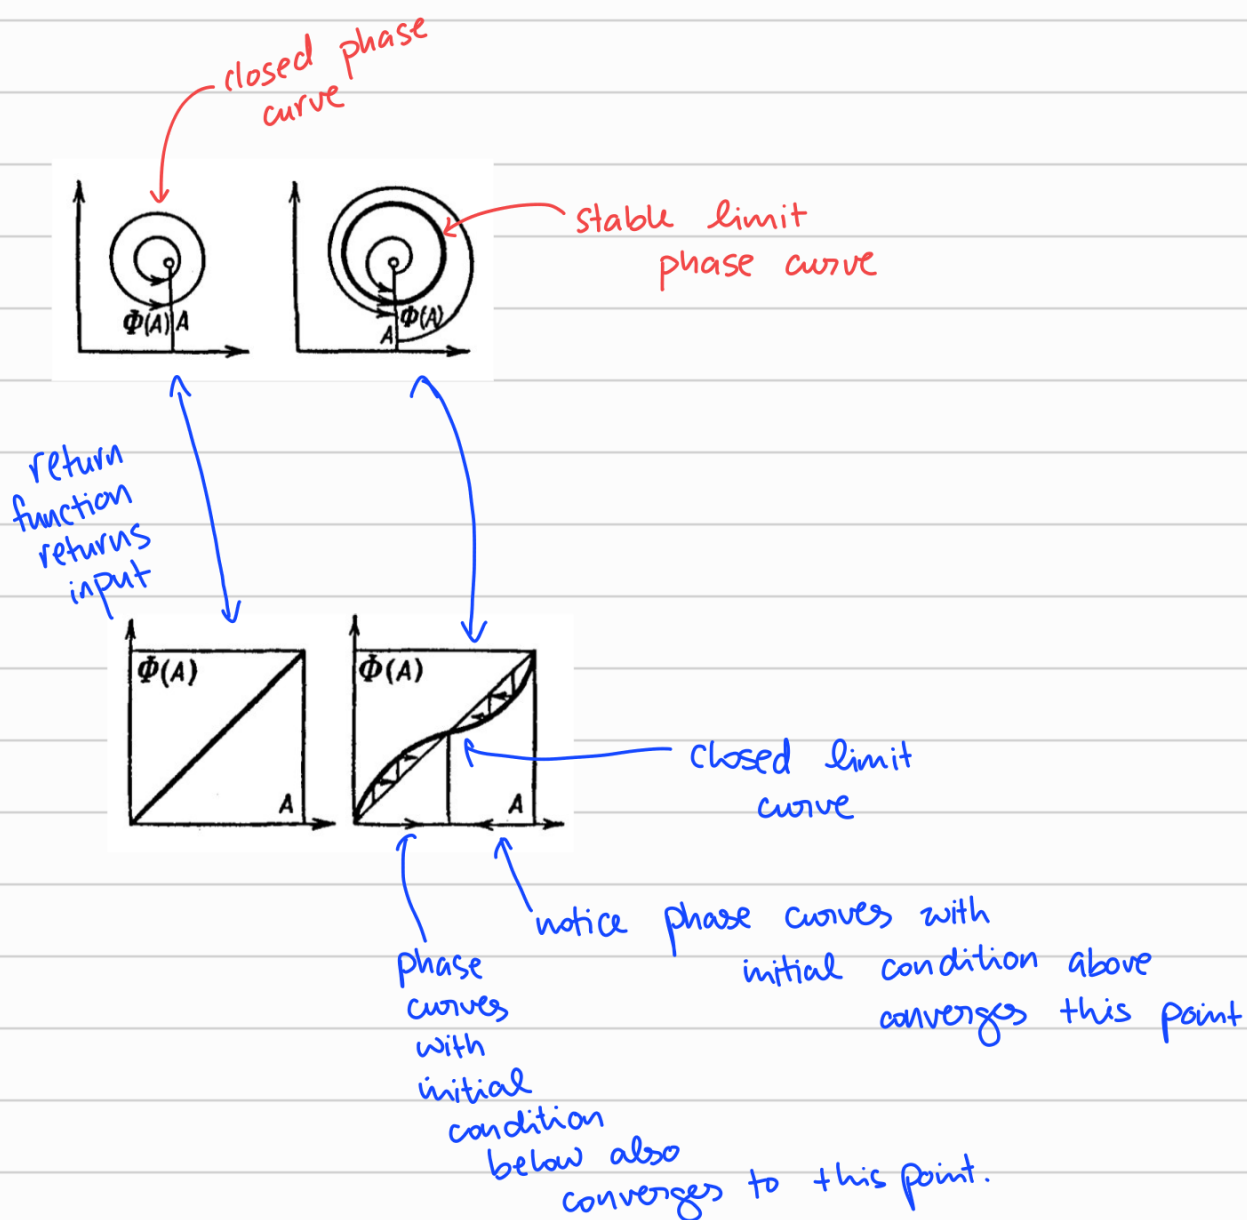 closed phase
curve
stable limit
phase curve
Φ(A) A
A Φ(A)
return
function
returns
input
Φ(A)
A
Φ(A)
A
closed limit
curve
notice phase curves with
initial condition above
converges this point
phase
curves
with
initial
condition
below also
converges to this point.